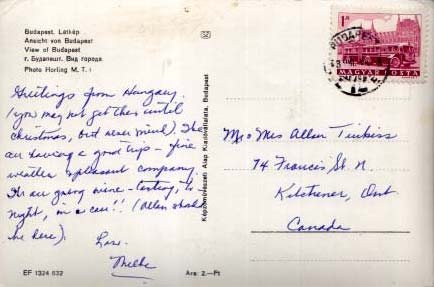 Budapest. Látkép
Ansicht von Budapest
View of Budapest
г. Будапешт. Вид города
Photo Horling M. T. I
Greetings from Hungary.
(you may not get this until
Christmas, but never mind). We
are having a good trip – fine
weather & pleasant company.
We are going wine-tasting, to-
night, in a cave!! (Allen should
be here).
Love.
Thelba
EF 1324 632
Ára: 2.—Ft
Képzőművészeti Alap Kiadóvállalata, Budapest
BUDAPEST
1 Ft
MAGYAR POSTA
Mr & Mrs Allan
74 Francis St N.
Kitchener, Ont
Canada